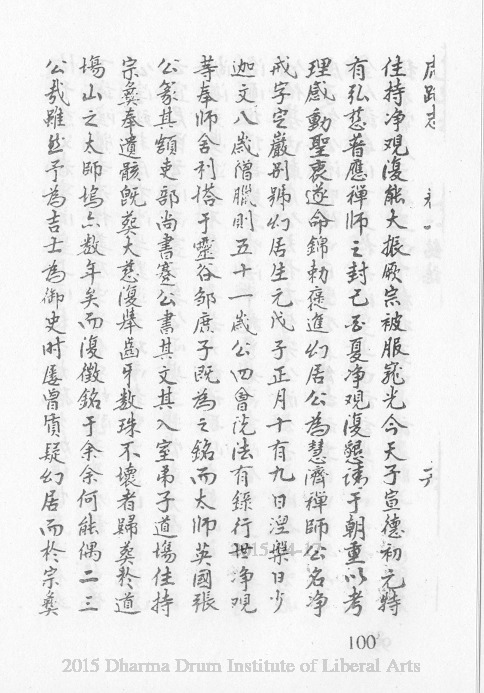 虎跑志
卷一
住持淨觀復能大振厥宗被服寵光今天子宣德初元特
有弘慈普應禪師之封己酉夏淨觀復懇請于朝重以考
理感動聖衷遂命錦勅褒進幻居公為慧濟禪師公名淨
戒字定巖別號幻居生元戊子正月十有九日涅槃日少
迦文八歲僧臘則五十一歲公四會説法有錄行世淨觀
等奉師舍利搭于靈谷鄒庶子既為之銘而太師英國張
公篆其額吏部尚書蹇公書其文其入室弟子道塲住持
宗彝奉遺骸既葬大慈復舉齒牙數珠不壞者歸葬於道
塲山之太師塢亦數年矣而復徵銘于余余何能偶二三
公哉雖然予為吉士為御史时屢曾質疑幻居而於宗彝
100
2015 Dharma Drum Institute of Liberal Arts